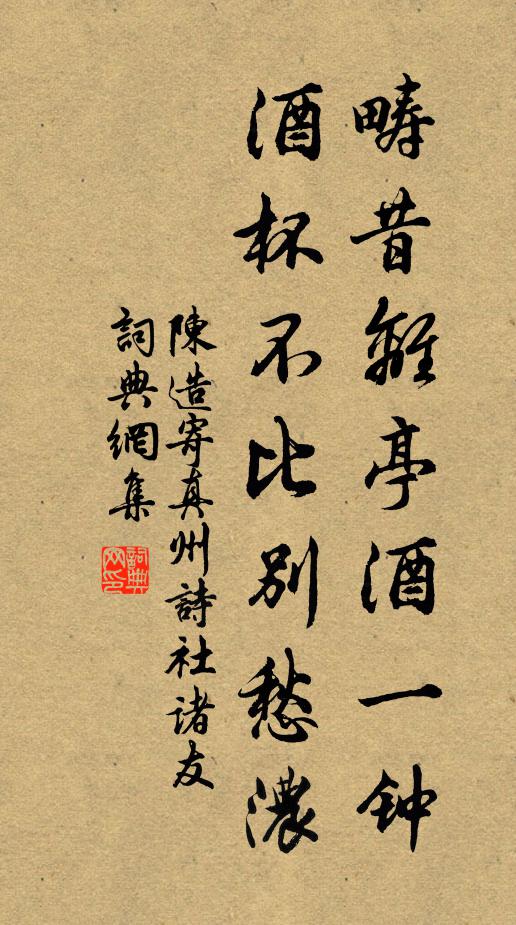 畴昔離亭酒一钟
酒杯不比別愁濃
陳造寄真州詩社诸友
詞典網集
詞典网印